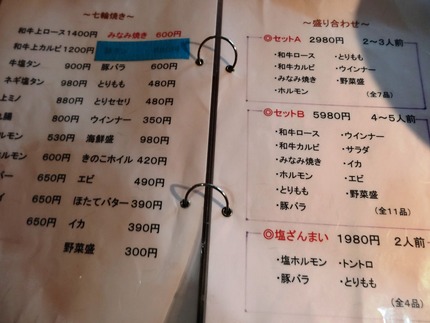 ～七輪焼き～
和牛上ロース1400円 みなみ焼き 600円
和牛上カルビ1200円
牛塩タン 900円 豚バラ 600円
ネギ塩タン 980円 とりもも 480円
上ミノ 880円 とりセセリ 480円
800円 ウインナー 350円
ルモン 530円 海鮮盛 980円
ルモン 600円 きのこホイル 420円
バー 650円 エビ 490円
650円 ほたてバター 390円
650円 イカ 390円
野菜盛 300円
～盛り合わせ～
◎セットA 2980円 2～3人前
・和牛ロース ・とりもも
・和牛カルビ ・ウインナー
・みなみ焼き ・野菜盛
・ホルモン (全7品)
◎セットB 5980円 4～5人前
・和牛ロース ・ウインナー
・和牛カルビ ・サラダ
・みなみ焼き ・イカ
・ホルモン ・エビ
・とりもも ・野菜盛
・豚バラ (全11品)
◎塩ざんまい 1980円 2人前
・塩ホルモン ・トントロ
・豚バラ ・とりもも
(全4品)